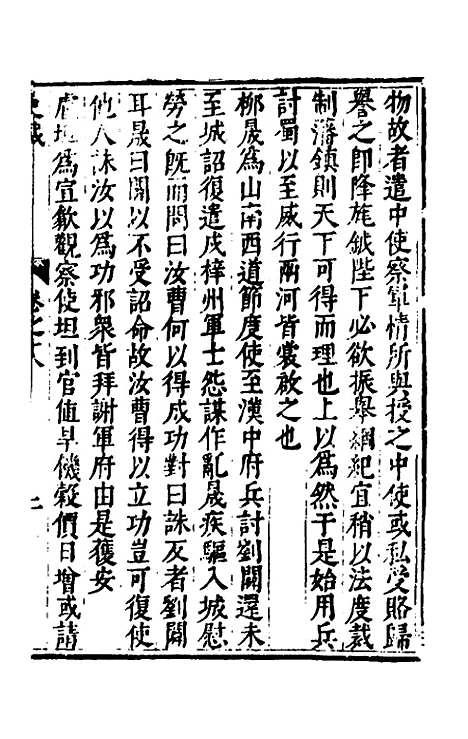 物故者遣中使察軍情所與授之中使或私受賂歸
譽之即降旄鉞陛下必欲振舉綱紀宜稍以法度裁
制藩鎮則天下可得而理也上以為然于是始用兵
討蜀以至威行兩河皆裳啟之也
柳晟為山南西道節度使至漢中府兵討劉闢還未
至城詔復遣戍梓州軍士怨謀作亂晟疾驅入城慰
勞之既而問曰汝曹何以得成功對曰誅反者劉闢
耳晟曰闢以不受詔命故汝曹得以立功豈可復使
他人誅汝以爲功邪衆皆拜謝軍府由是獲安
盧坦爲宣歙觀察使坦到官值旱饑穀價日增或請
卷之十八